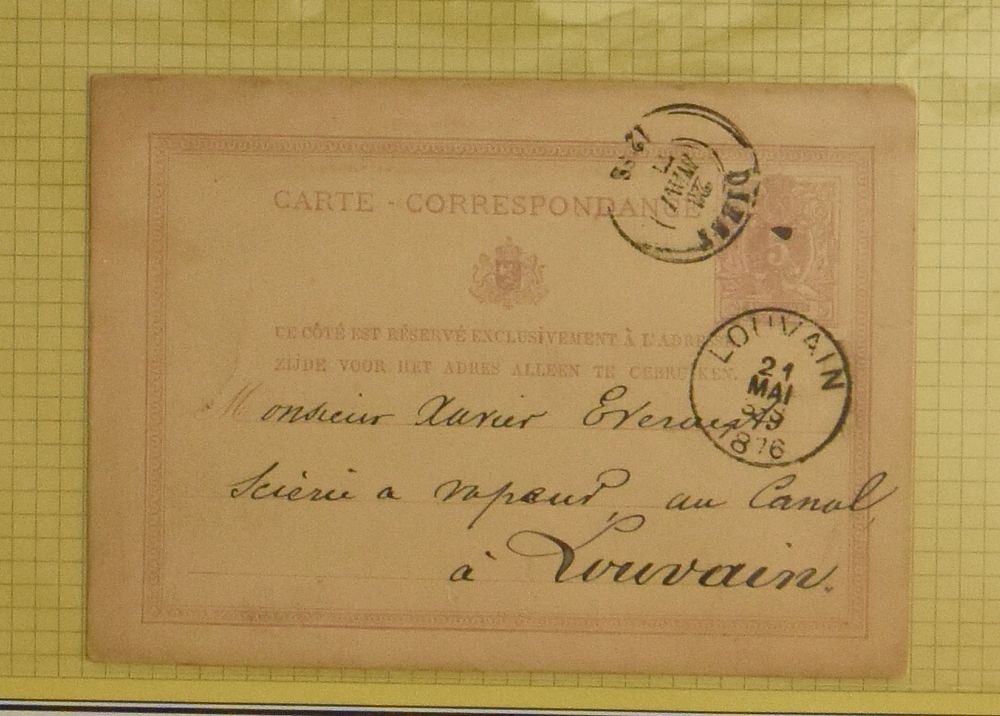 CARTE - CORRESPONDANCE
DIEST
12-S
5
CE CÔTÉ EST RÉSERVÉ EXCLUSIVEMENT À L'ADRESSE
ZIJDE VOOR HET ADRES ALLEEN TE GEBRUIKEN.
LOUVAIN
21
MAI
1876
Monsieur Xavier
Scierie a vapeur, au Canal,
à Louvain.